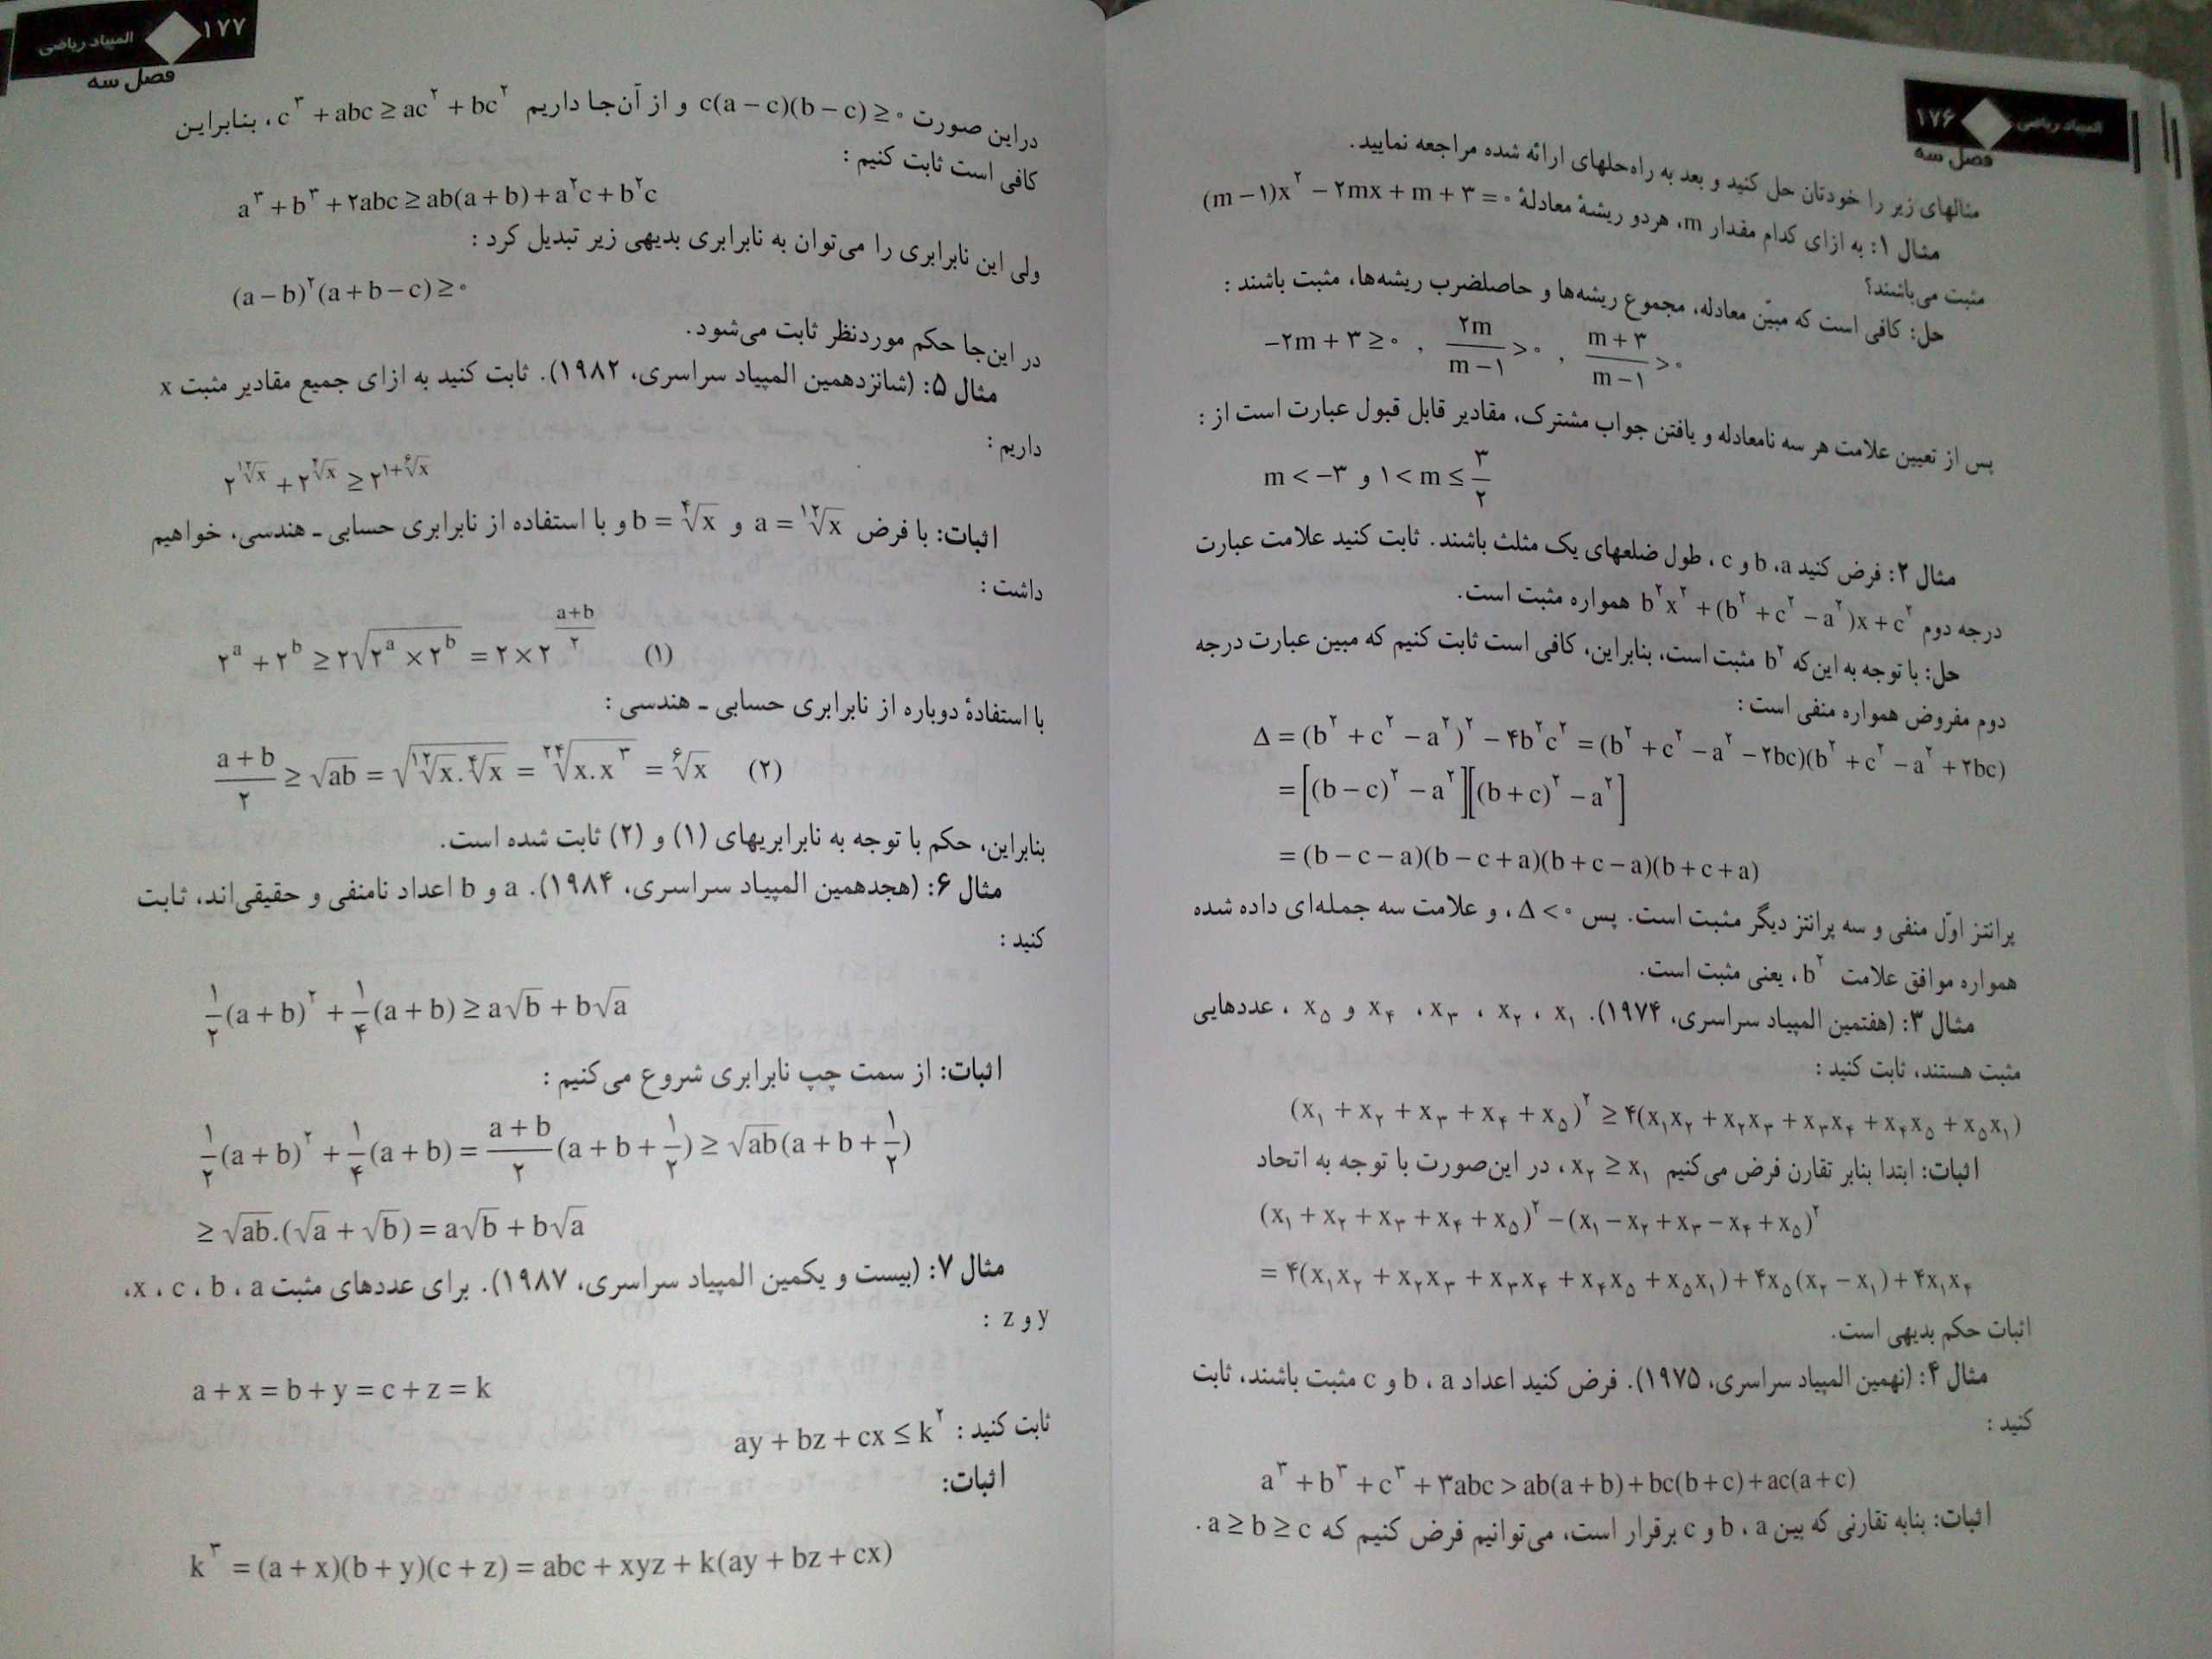 ۱۷۶ المپیاد ریاضی
فصل سه
مثالهای زیر را خودتان حل کنید و بعد به راه‌حلهای ارائه شده مراجعه نمایید.
مثال ۱: به ازای کدام مقدار m، هردو ریشهٔ معادلهٔ (m − ۱)x^۲ − ۲mx + m + ۳ = ۰
مثبت می‌باشند؟
حل: کافی است که مبیّن معادله، مجموع ریشه‌ها و حاصلضرب ریشه‌ها، مثبت باشند :
−۲m + ۳ ≥ ۰ , ۲m/(m − ۱) > ۰ , (m + ۳)/(m − ۱) > ۰
پس از تعیین علامت هر سه نامعادله و یافتن جواب مشترک، مقادیر قابل قبول عبارت است از :
m < −۳ و ۱ < m ≤ ۳/۲
مثال ۲: فرض کنید a، b و c، طول ضلعهای یک مثلث باشند. ثابت کنید علامت عبارت
درجه دوم b^۲x^۲ + (b^۲ + c^۲ − a^۲)x + c^۲ همواره مثبت است.
حل: با توجه به این‌که b^۲ مثبت است، بنابراین، کافی است ثابت کنیم که مبین عبارت درجه
دوم مفروض همواره منفی است :
Δ = (b^۲ + c^۲ − a^۲)^۲ − ۴b^۲c^۲ = (b^۲ + c^۲ − a^۲ − ۲bc)(b^۲ + c^۲ − a^۲ + ۲bc)
= [(b − c)^۲ − a^۲][(b + c)^۲ − a^۲]
= (b − c − a)(b − c + a)(b + c − a)(b + c + a)
پرانتز اوّل منفی و سه پرانتز دیگر مثبت است. پس Δ < ۰، و علامت سه جمله‌ای داده شده
همواره موافق علامت b^۲، یعنی مثبت است.
مثال ۳: (هفتمین المپیاد سراسری، ۱۹۷۴). x₁، x₂، x₃، x₄ و x₅، عددهایی
مثبت هستند، ثابت کنید :
(x₁ + x₂ + x₃ + x₄ + x₅)^۲ ≥ ۴(x₁x₂ + x₂x₃ + x₃x₄ + x₄x₅ + x₅x₁)
اثبات: ابتدا بنابر تقارن فرض می‌کنیم x₂ ≥ x₁، در این‌صورت با توجه به اتحاد
(x₁ + x₂ + x₃ + x₄ + x₅)^۲ − (x₁ − x₂ + x₃ − x₄ + x₅)^۲
= ۴(x₁x₂ + x₂x₃ + x₃x₄ + x₄x₅ + x₅x₁) + ۴x₅(x₂ − x₁) + ۴x₁x₄
اثبات حکم بدیهی است.
مثال ۴: (نهمین المپیاد سراسری، ۱۹۷۵). فرض کنید اعداد a، b و c مثبت باشند، ثابت
کنید :
a^۳ + b^۳ + c^۳ + ۳abc > ab(a + b) + bc(b + c) + ac(a + c)
اثبات: بنابه تقارنی که بین a، b و c برقرار است، می‌توانیم فرض کنیم که a ≥ b ≥ c.
المپیاد ریاضی ۱۷۷
فصل سه
دراین صورت c(a − c)(b − c) ≥ ۰ و از آن‌جا داریم c^۳ + abc ≥ ac^۲ + bc^۲، بنابراین
کافی است ثابت کنیم :
a^۳ + b^۳ + ۲abc ≥ ab(a + b) + a^۲c + b^۲c
ولی این نابرابری را می‌توان به نابرابری بدیهی زیر تبدیل کرد :
(a − b)^۲(a + b − c) ≥ ۰
در این‌جا حکم موردنظر ثابت می‌شود.
مثال ۵: (شانزدهمین المپیاد سراسری، ۱۹۸۲). ثابت کنید به ازای جمیع مقادیر مثبت x
داریم :
۲^(¹²√x) + ۲^(⁴√x) ≥ ۲^(۱+⁶√x)
اثبات: با فرض a = ¹²√x و b = ⁴√x و با استفاده از نابرابری حسابی ـ هندسی، خواهیم
داشت :
۲^a + ۲^b ≥ ۲√(۲^a × ۲^b) = ۲ × ۲^((a+b)/۲) (۱)
با استفادهٔ دوباره از نابرابری حسابی ـ هندسی :
(a + b)/۲ ≥ √ab = √(¹²√x.⁴√x) = ²⁴√(x.x^۳) = ⁶√x (۲)
بنابراین، حکم با توجه به نابرابریهای (۱) و (۲) ثابت شده است.
مثال ۶: (هجدهمین المپیاد سراسری، ۱۹۸۴). a و b اعداد نامنفی و حقیقی‌اند، ثابت
کنید :
۱/۲(a + b)^۲ + ۱/۴(a + b) ≥ a√b + b√a
اثبات: از سمت چپ نابرابری شروع می‌کنیم :
۱/۲(a + b)^۲ + ۱/۴(a + b) = (a + b)/۲(a + b + ۱/۲) ≥ √ab(a + b + ۱/۲)
≥ √ab.(√a + √b) = a√b + b√a
مثال ۷: (بیست و یکمین المپیاد سراسری، ۱۹۸۷). برای عددهای مثبت a، b، c، x،
y و z :
a + x = b + y = c + z = k
ثابت کنید : ay + bz + cx ≤ k^۲
اثبات:
k^۳ = (a + x)(b + y)(c + z) = abc + xyz + k(ay + bz + cx)